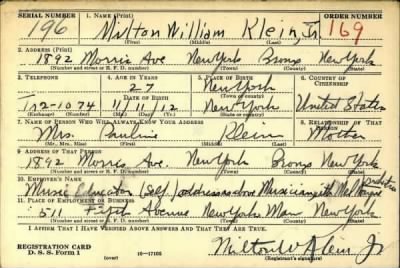 SERIAL NUMBER 1. NAME (Print) ORDER NUMBER
196 Milton William Klein Jr. 169
(First) (Middle) (Last)
2. ADDRESS (Print)
1892 Morris Ave New York Bronx New York
(Number and street or R. F. D. number) (Town) (County) (State)
3. TELEPHONE 4. AGE IN YEARS 5. PLACE OF BIRTH 6. COUNTRY OF CITIZENSHIP
27 New York
DATE OF BIRTH (Town or county)
Tr 2-1074 11/1/12 New York United States
(Exchange) (Number) (Mo.) (Day) (Yr.) (State or country)
7. NAME OF PERSON WHO WILL ALWAYS KNOW YOUR ADDRESS 8. RELATIONSHIP OF THAT PERSON
Mrs. Pauline Klein Mother
(Mr., Mrs., Miss) (First) (Middle) (Last)
9. ADDRESS OF THAT PERSON
1892 Morris Ave. New York Bronx New York
(Number and street or R. F. D. number) (Town) (County) (State)
10. EMPLOYER'S NAME
Music Educator (Self) address above Musician with
11. PLACE OF EMPLOYMENT OR BUSINESS
511 Fifth Avenue New York Man New York
(Number and street or R. F. D. number) (Town) (County) (State)
I AFFIRM THAT I HAVE VERIFIED ABOVE ANSWERS AND THAT THEY ARE TRUE.
REGISTRATION CARD
D. S. S. Form 1 16-17105 Milton W Klein Jr
(Registrant's signature)